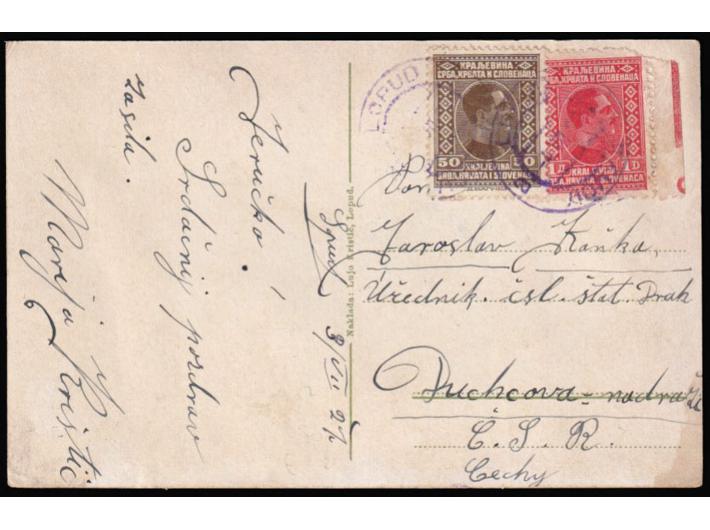 Jerúčko!
Srdačnij pozdrav
zasila.
Marija Kristić
Lopud
3/VII 27
Naklada: Lujo Kristić, Lopud.
LOPUD
КРАЉЕВИНА
СРБА, ХРВАТА И СЛОВЕНАЦА
50 KRALJEVINA 50
SRBA, HRVATA I SLOVENACA
КРАЉЕВИНА
СРБА, ХРВАТА И СЛОВЕНАЦА
1 Д KRALJEVINA 1 D
SRBA, HRVATA I SLOVENACA
Pan
Jaroslav Kaňka,
Úředník. čsl. štat. Drah
Duchcova-nadraží
Č. S. R.
Čechy